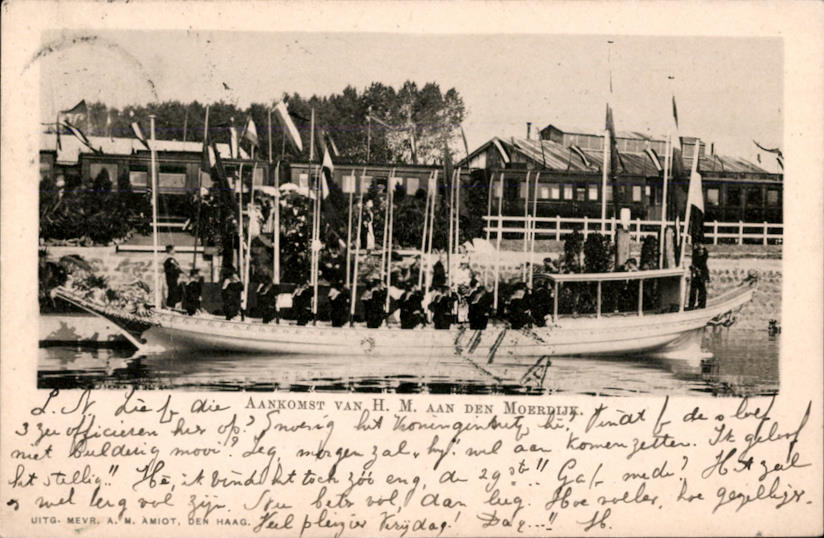 Aankomst van H. M. aan den Moerdijk.
L. N. Zie je die
3 zeeofficieren hier op? Snoezig het Koninginnetje, hè! Vindt je de sloep
niet bulderig mooi? Zeg, morgen zal "hy" wel aan komen zetten. Ik geloof
het stellig!! Hè, ik vind het toch zóó eng, de 29ste!! Ga je mede? Het zal
er wel erg vol zijn. Nu beter vol, dan leeg. Hoe voller, hoe gezelliger.
Veel plezier Vrijdag! Dag...!! H.
Uitg. Mevr. A. M. Amiot, Den Haag.